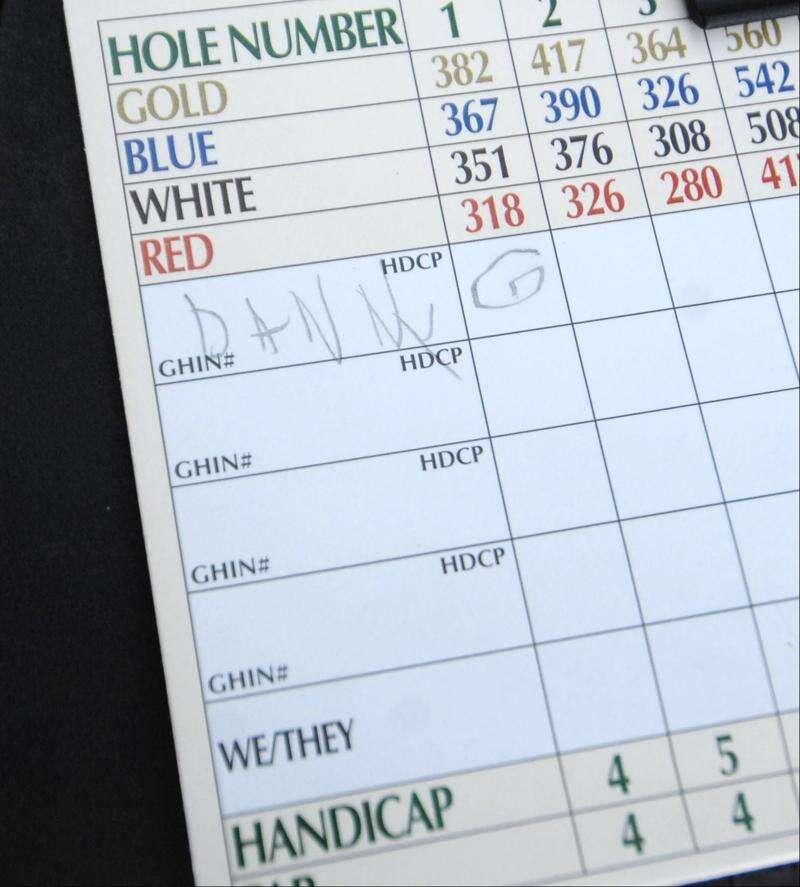 HOLE NUMBER 1 2 3
GOLD 382 417 364 560
BLUE 367 390 326 542
WHITE 351 376 308 508
RED 318 326 280 41
HDCP
DANNY G
GHIN#
HDCP
GHIN#
HDCP
GHIN#
HDCP
GHIN#
WE/THEY
HANDICAP 4 5
PAR 4 4